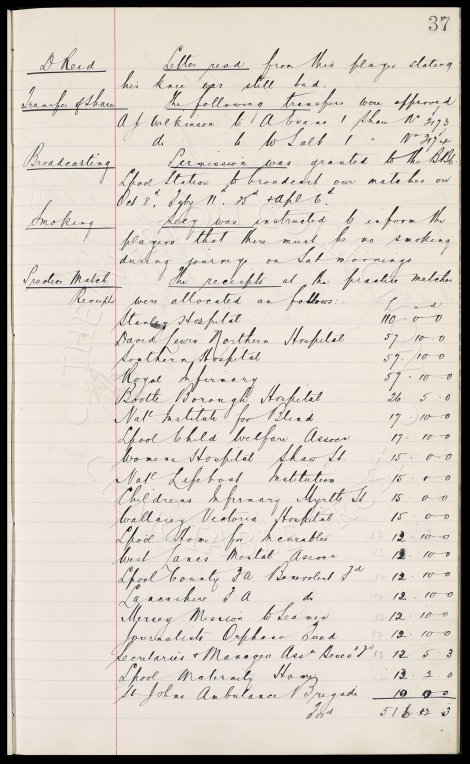 37
D Reid Letter read from this player stating
his knee was still bad.
Transfer of Shares The following transfers were approved
A J Wilkinson to A Evans 1 Share No 2173
do to W Salt 1 " No 2174
Broadcasting Permission was granted to the BBC
Lpool Station to broadcast our matches on
Oct 8, Feby 11th 25th & Apl 6th
Smoking Secy was instructed to inform the
players that there must be no smoking
during journeys on Sat mornings
Practice Match The receipts at the practice matches
Receipts were allocated as follows:-
£ s d
Stanley Hospital 110 - 0 - 0
David Lewis Northern Hospital 57 . 10 - 0
Southern Hospital 57 . 10 - 0
Royal Infirmary 57 . 10 - 0
Bootle Borough Hospital 26 . 5 . 0
Natl Institute for Blind 17 . 10 - 0
Lpool Child Welfare Assocn 17 . 10 - 0
Womens Hospital Shaw St 15 . 0 - 0
Natl Lifeboat Institution 15 . 0 - 0
Childrens Infirmary Myrtle St 15 . 0 - 0
Wallasey Victoria Hospital 15 . 0 - 0
Lpool Home for Incurables 12 . 10 - 0
West Lancs Mental Assocn 12 . 10 - 0
Lpool County FA Benevolent Fd 12 . 10 - 0
Lancashire F A do 12 . 10 - 0
Mersey Mission to Seamen 12 . 10 - 0
Journalists Orphan Fund 12 . 10 - 0
Secretaries & Managers Assn Benevt Fd 12 . 5 . 3
Lpool Maternity Home 12 . 2 . 0
St Johns Ambulance Brigade 10 0 0
Ford 516 . 12 3